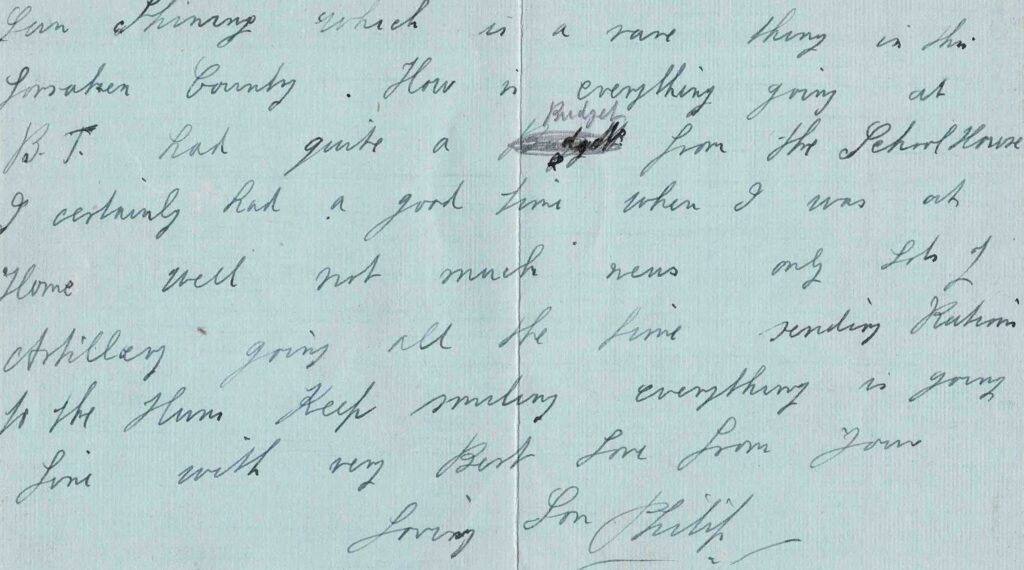 Sun Shining which is a rare thing in this
forsaken County. How is everything going at
Budget
B.T. had quite a Budget from the School House
I certainly had a good time when I was at
Home well not much news only Lots of
Artillery going all the time sending Rations
to the Huns Keep smiling everything is going
fine with very Best Love from Your
Loving Son Philip